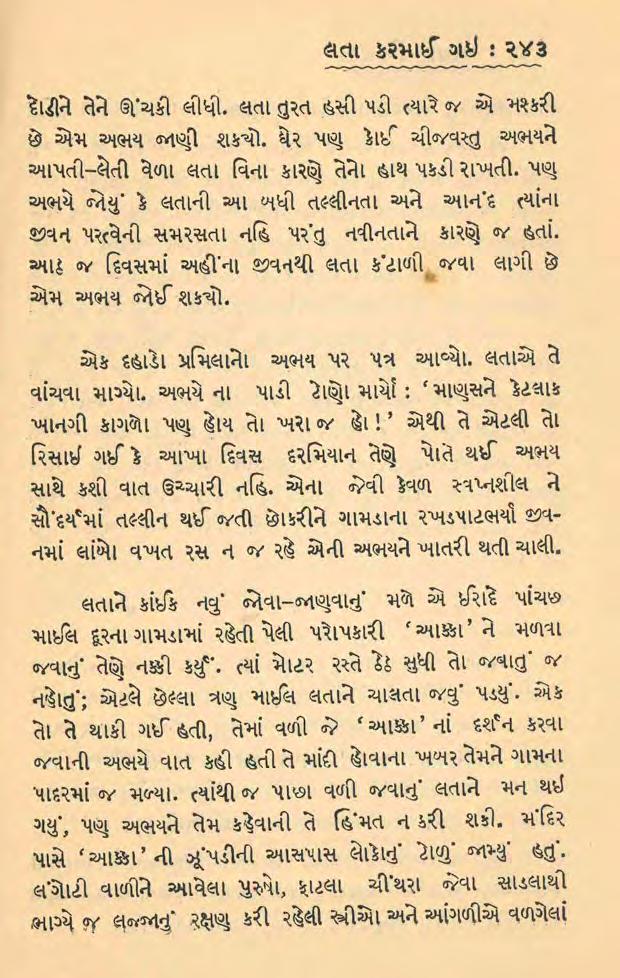 લતા કરમાઈ ગઇ : ૨૪૩
દોડીને તેને ઊંચકી લીધી. લતા તુરત હસી પડી ત્યારે જ એ મશ્કરી
છે એમ અભય જાણી શકયો. ઘેર પણ કોઈ ચીજવસ્તુ અભયને
આપતી–લેતી વેળા લતા વિના કારણે તેનો હાથ પકડી રાખતી. પણ
અભયે જોયું કે લતાની આ બધી તલ્લીનતા અને આનંદ ત્યાંના
જીવન પરત્વેની સમરસતા નહિ પરંતુ નવીનતાને કારણે જ હતાં.
આઠ જ દિવસમાં અહીંના જીવનથી લતા કંટાળી જવા લાગી છે
એમ અભય જોઈ શકયો.
એક દહાડો પ્રમિલાનો અભય પર પત્ર આવ્યો. લતાએ તે
વાંચવા માગ્યો. અભયે ના પાડી ટોણો માર્યો : ‘માણસને કેટલાક
ખાનગી કાગળો પણ હોય તો ખરા જ હો !’ એથી તે એટલી તો
રિસાઇ ગઈ કે આખા દિવસ દરમિયાન તેણે પોતે થઈ અભય
સાથે કશી વાત ઉચ્ચારી નહિ. એના જેવી કેવળ સ્વપ્નશીલ ને
સૌંદર્યમાં તલ્લીન થઈ જતી છોકરીને ગામડાના રખડપાટભર્યા જીવ-
નમાં લાંબો વખત રસ ન જ રહે એની અભયને ખાતરી થતી ચાલી.
લતાને કાંઈક નવું જોવા–જાણવાનું મળે એ ઈરાદે પાંચછ
માઈલ દૂરના ગામડામાં રહેતી પેલી પરોપકારી ‘આક્કા’ને મળવા
જવાનું તેણે નક્કી કર્યું. ત્યાં મોટર રસ્તે ઠેઠ સુધી તો જવાતું જ
નહોતું; એટલે છેલ્લા ત્રણ માઈલ લતાને ચાલતા જવું પડયું. એક
તો તે થાકી ગઈ હતી, તેમાં વળી જે ‘આક્કા’નાં દર્શન કરવા
જવાની અભયે વાત કહી હતી તે માંદી હોવાના ખબર તેમને ગામના
પાદરમાં જ મળ્યા. ત્યાંથી જ પાછા વળી જવાનું લતાને મન થઇ
ગયું, પણ અભયને તેમ કહેવાની તે હિંમત ન કરી શકી. મંદિર
પાસે ‘આક્કા’ની ઝૂંપડીની આસપાસ લોકોનું ટોળું જામ્યું હતું.
લંગોટી વાળીને આવેલા પુરુષો, ફાટલા ચીંથરા જેવા સાડલાથી
ભાગ્યે જ લજ્જાનું રક્ષણ કરી રહેલી સ્ત્રીઓ અને આંગળીએ વળગેલાં